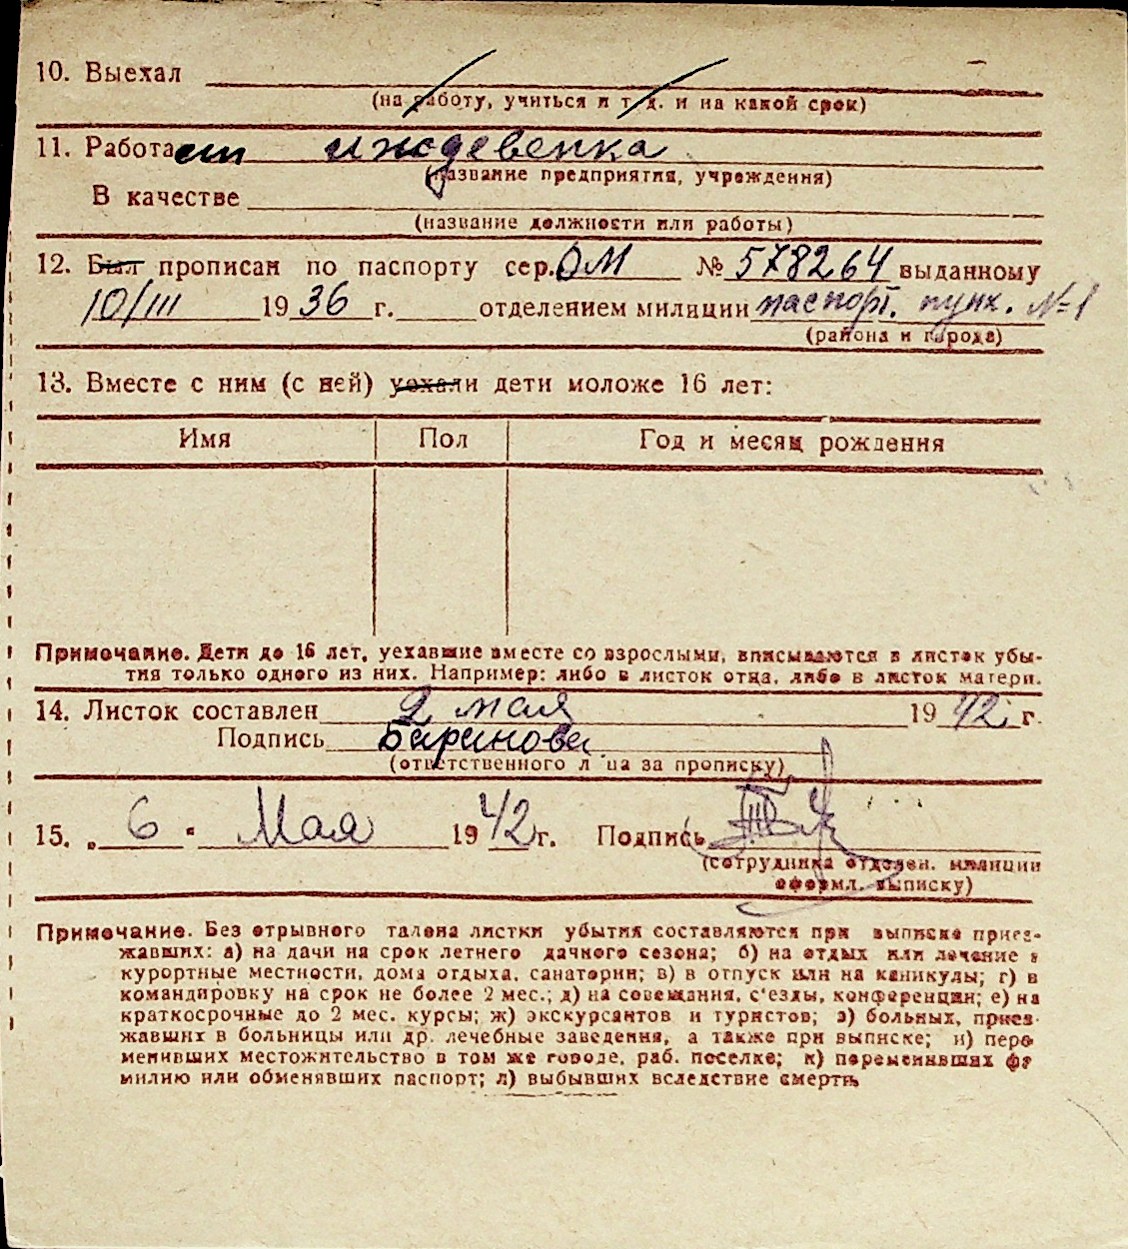 10. Выехал
(на работу, учиться и т. д. и на какой срок)
11. Работает иждевенка
(название предприятия, учреждения)
В качестве
(название должности или работы)
12. Был прописан по паспорту сер. ОМ № 578264 выданному
10/III 1936 г. отделением милиции паспорт. пунк. №1
(района и города)
13. Вместе с ним (с ней) уехали дети моложе 16 лет:
Имя Пол Год и месяц рождения
Примечание. Дети до 16 лет, уехавшие вместе со взрослыми, вписываются в листок убы-
тия только одного из них. Например: либо в листок отца, либо в листок матери.
14. Листок составлен 2 мая 1942 г.
Подпись Баринова
(ответственного лица за прописку)
15. „6“ Мая 1942 г. Подпись
(сотрудника отделен. милиции
оформл. выписку)
Примечание. Без отрывного талона листки убытия составляются при выписке приез-
жавших: а) на дачи на срок летнего дачного сезона; б) на отдых или лечение в
курортные местности, дома отдыха, санатории; в) в отпуск или на каникулы; г) в
командировку на срок не более 2 мес.; д) на совещания, с'езды, конференции; е) на
краткосрочные до 2 мес. курсы; ж) экскурсантов и туристов; з) больных, приез-
жавших в больницы или др. лечебные заведения, а также при выписке; и) пере
менивших местожительство в том же городе, раб. поселке; к) переменивших фа
милию или обменявших паспорт; л) выбывших вследствие смерти